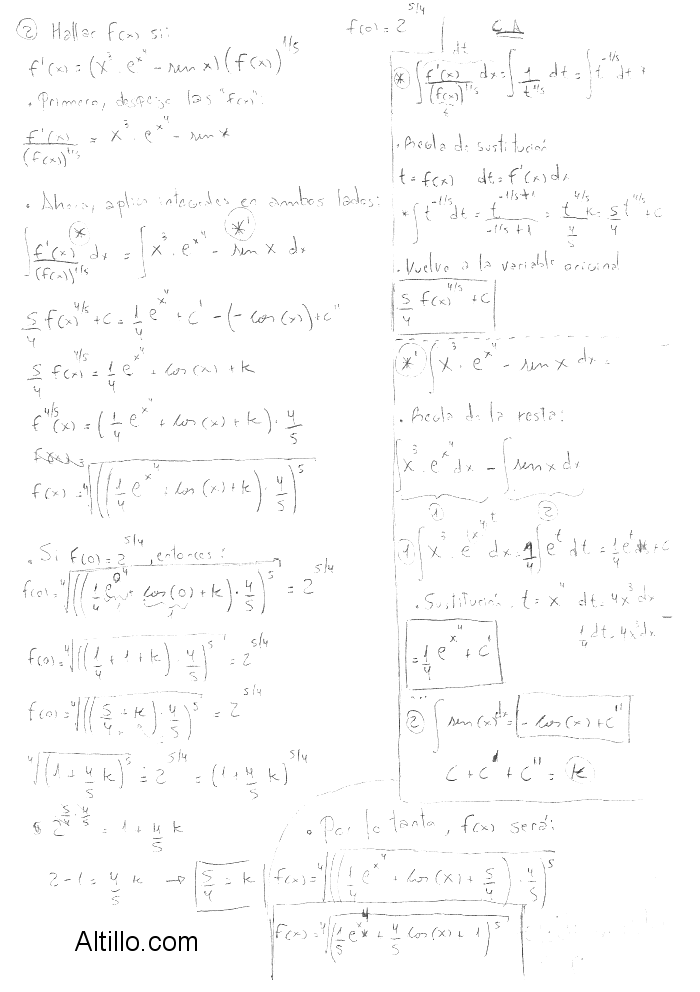 ② Hallar f(x) si:
f(0) = 2^{5/4}
f'(x) = (x³ · e^{x⁴} - sen x) (f(x))^{1/5}
• Primero, despejo las "f(x)":
f'(x)/(f(x))^{1/5} = x³ · e^{x⁴} - sen x
• Ahora, aplico integrales en ambos lados:
∫ f'(x)/(f(x))^{1/5} dx = ∫ x³ · e^{x⁴} - sen x dx
* *'
5/4 f(x)^{4/5} + C = 1/4 e^{x⁴} + C' - (-cos(x)) + C''
5/4 f(x)^{4/5} = 1/4 e^{x⁴} + cos(x) + k
f^{4/5}(x) = (1/4 e^{x⁴} + cos(x) + k) · 4/5
f(x) = ⁴√((1/4 e^{x⁴} + cos(x) + k) · 4/5)⁵
• Si f(0) = 2^{5/4}, entonces:
f(0) = ⁴√((1/4 e^{0⁴} + cos(0) + k) · 4/5)⁵ = 2^{5/4}
f(0) = ⁴√((1/4 + 1 + k) · 4/5)⁵ = 2^{5/4}
f(0) = ⁴√((5/4 + k) · 4/5)⁵ = 2^{5/4}
⁴√(1 + 4/5 k)⁵ = 2^{5/4} = (1 + 4/5 k)^{5/4}
2^{5/4 · 4/5} = 1 + 4/5 k
2 - 1 = 4/5 k → 5/4 = k
C.A
* ∫ f'(x)/(f(x))^{1/5} dx = ∫ 1/t^{1/5} dt = ∫ t^{-1/5} dt *
dt
t
• Regla de sustitución
t = f(x) dt = f'(x) dx
* ∫ t^{-1/5} dt = t^{-1/5+1}/(-1/5+1) = t^{4/5}/(4/5) = 5/4 t^{4/5} + C
• Vuelvo a la variable original
5/4 f(x)^{4/5} + C
*' ∫ x³ · e^{x⁴} - sen x dx =
• Regla de la resta:
∫ x³ · e^{x⁴} dx - ∫ sen x dx
① ②
① ∫ x³ · e^{x⁴} dx = 1/4 ∫ e^t dt = 1/4 e^t + C
• Sustitución: t = x⁴ dt = 4x³ dx
1/4 dt = 4x³ dx
= 1/4 e^{x⁴} + C'
② ∫ sen(x) dx = -cos(x) + C''
C + C' + C'' = k
• Por lo tanto, f(x) será:
f(x) = ⁴√((1/4 e^{x⁴} + cos(x) + 5/4) · 4/5)⁵
f(x) = ⁴√(1/5 e^{x⁴} + 4/5 cos(x) + 1)⁵
Altillo.com